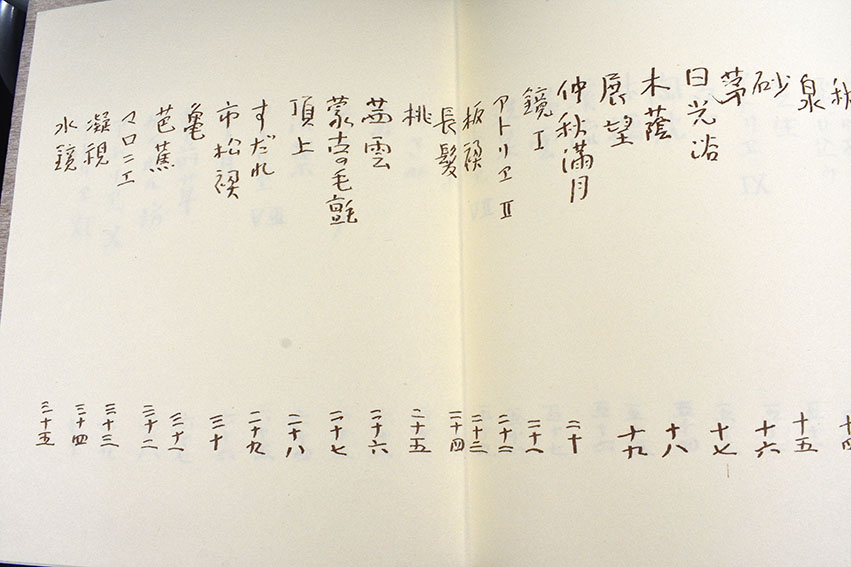 泉 十四
砂 十五
茅 十六
日光浴 十七
木蔭 十八
展望 十九
仲秋満月 二十
鏡 Ⅰ 二十一
アトリエ Ⅱ 二十二
板襖 二十三
長髪 二十四
桃 二十五
茜雲 二十六
蒙古の毛氈 二十七
頂上 二十八
すだれ 二十九
市松襖 三十
亀 三十一
芭蕉 三十二
マロニエ 三十三
凝視 三十四
水鏡 三十五